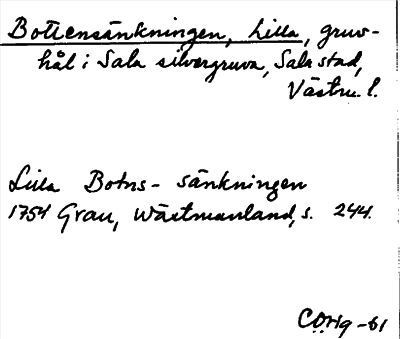 Bottensänkningen, Lilla, gruv-
hål i Sala silvergruva, Sala stad,
Västm. l.
Lilla Botns- sänkningen
1754 Grau, Wästmanland, s. 244.
COrtg -61